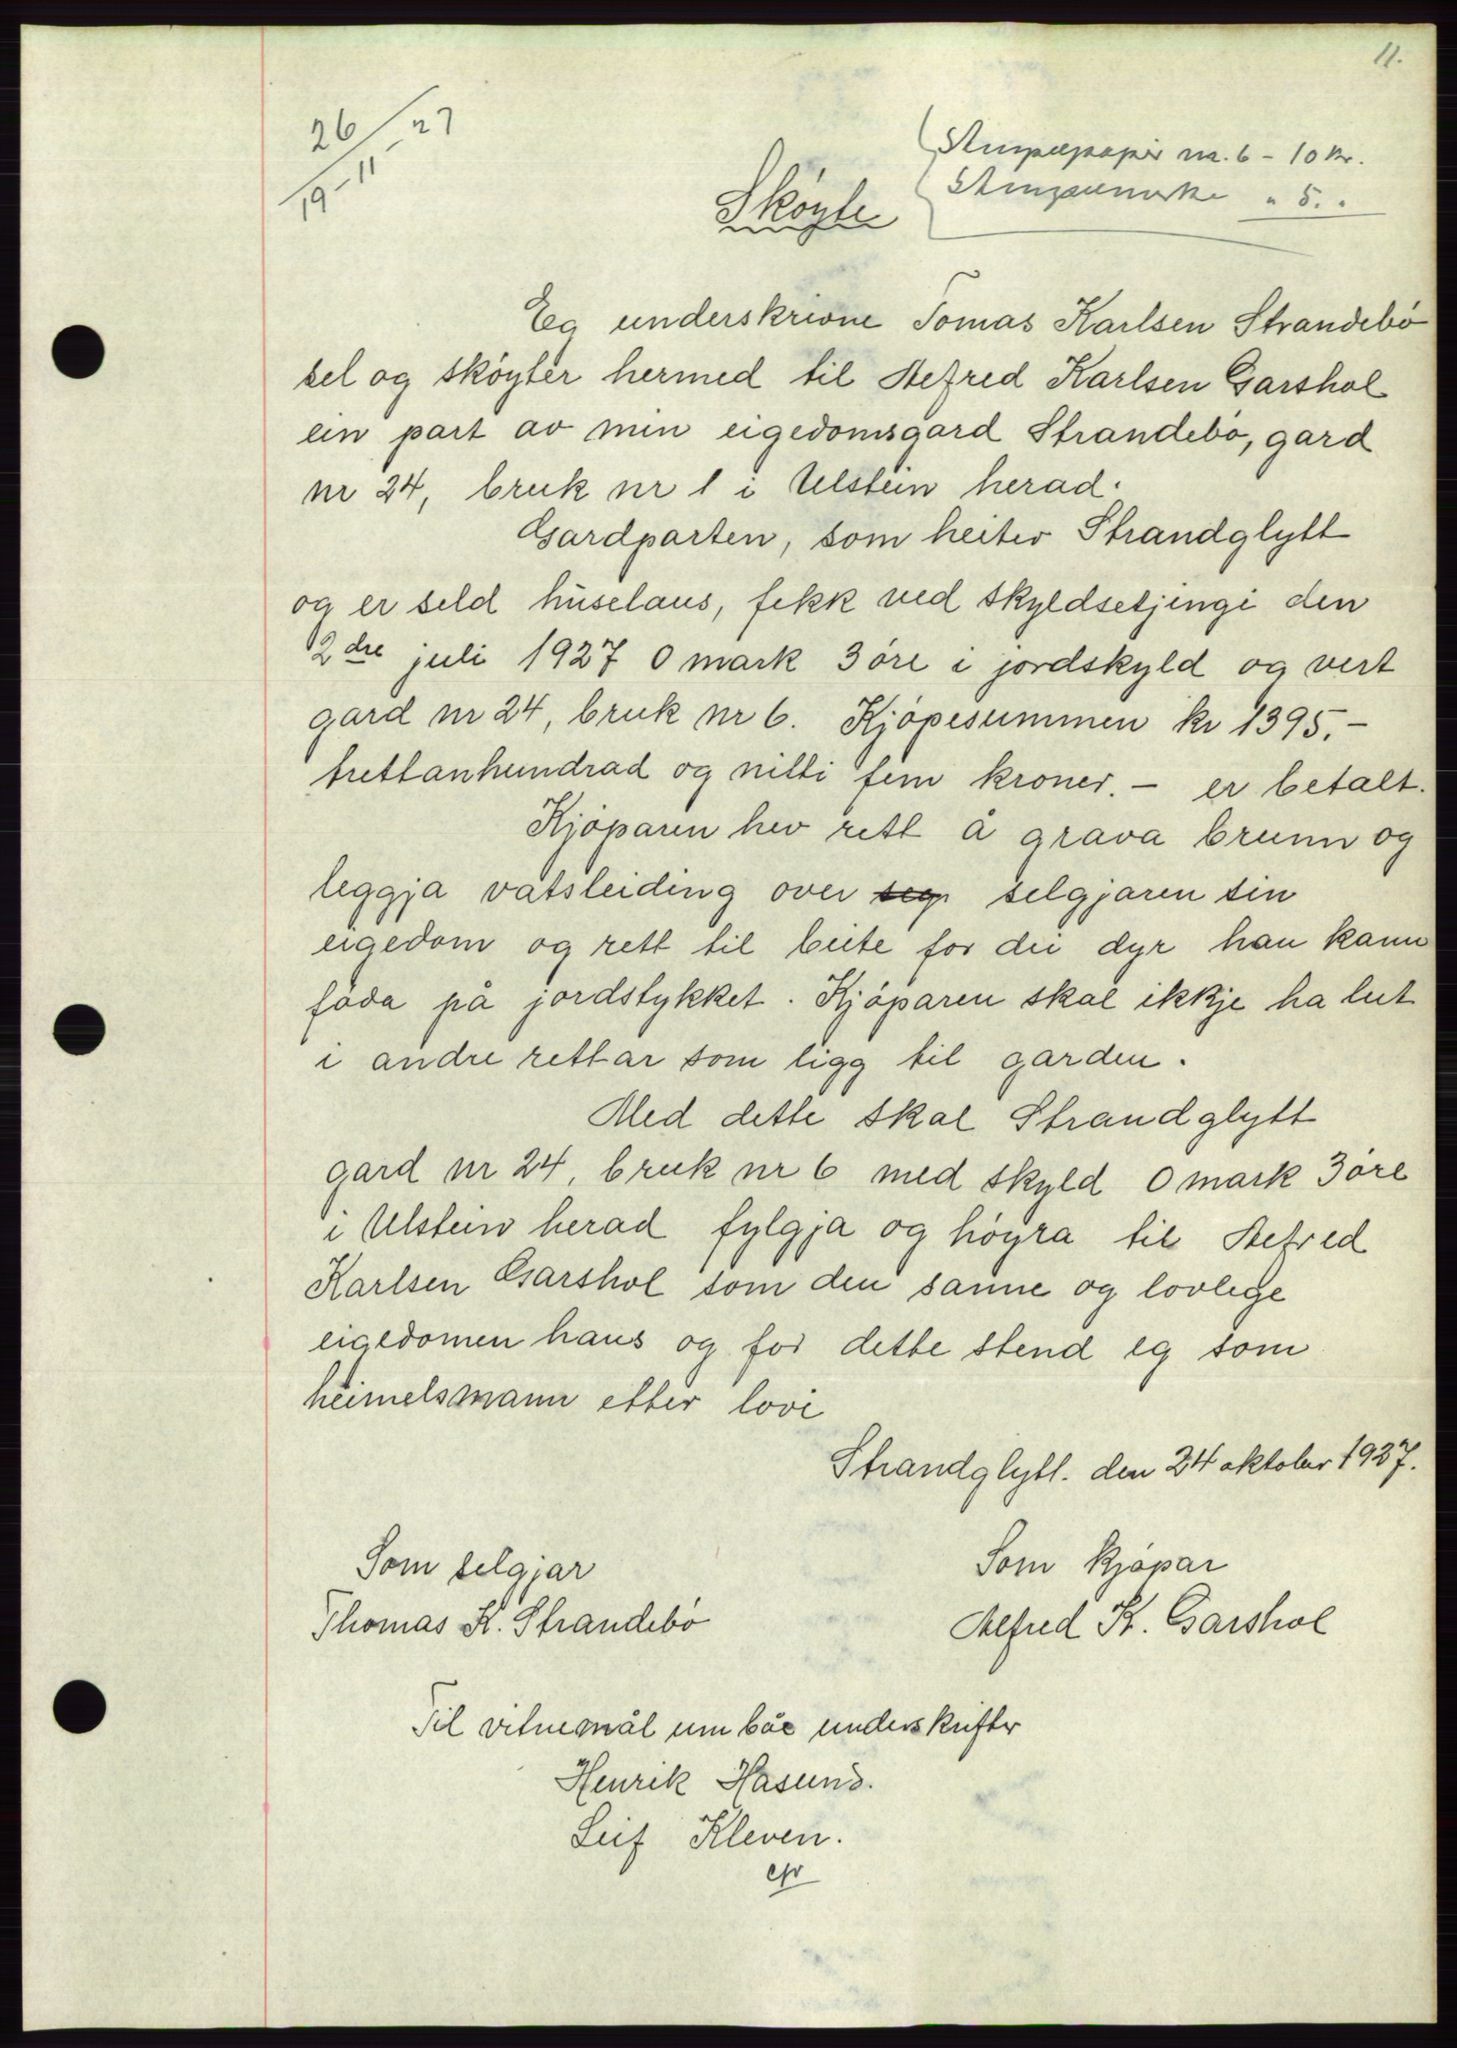 11.
26/19-11-27
Stempelpapir nr. 6 - 10 kr.
Stempelmerke " 5. "
Skøyte
Eg underskrivne Tomas Karlsen Strandebø
sel og skøyter hermed til Alfred Karlsen Garshol
ein part av min eigedomsgard Strandebø, gard
nr 24, bruk nr 1 i Ulstein herad.
Gardparten, som heiter Strandglytt
og er seld huselaus, fekk ved skyldsetjingi den
2dre juli 1927 0 mark 3 øre i jordskyld og vert
gard nr 24, bruk nr 6. Kjøpesummen kr 1395,-
trettanhundrad og nitti fem kroner. - er betalt.
Kjøparen hev rett å grava brunn og
leggja vatsleiding over seg selgjaren sin
eigedom og rett til beite for dei dyr han kann
føda på jordstykket. Kjøparen skal ikkje ha lut
i andre rettar som ligg til garden.
Med dette skal Strandglytt
gard nr 24, bruk nr 6 med skyld 0 mark 3 øre
i Ulstein herad fylgja og høyra til Alfred
Karlsen Garshol som den sanne og lovlege
eigedomen hans og for dette stend eg som
heimelsmann etter lovi
Strandglytt. den 24 oktober 1927.
Som selgjar
Thomas K. Strandebø
Som kjøpar
Alfred K. Garshol
Til vitnemål um båe underskrifter
Henrik Hasund.
Leif Kleven.